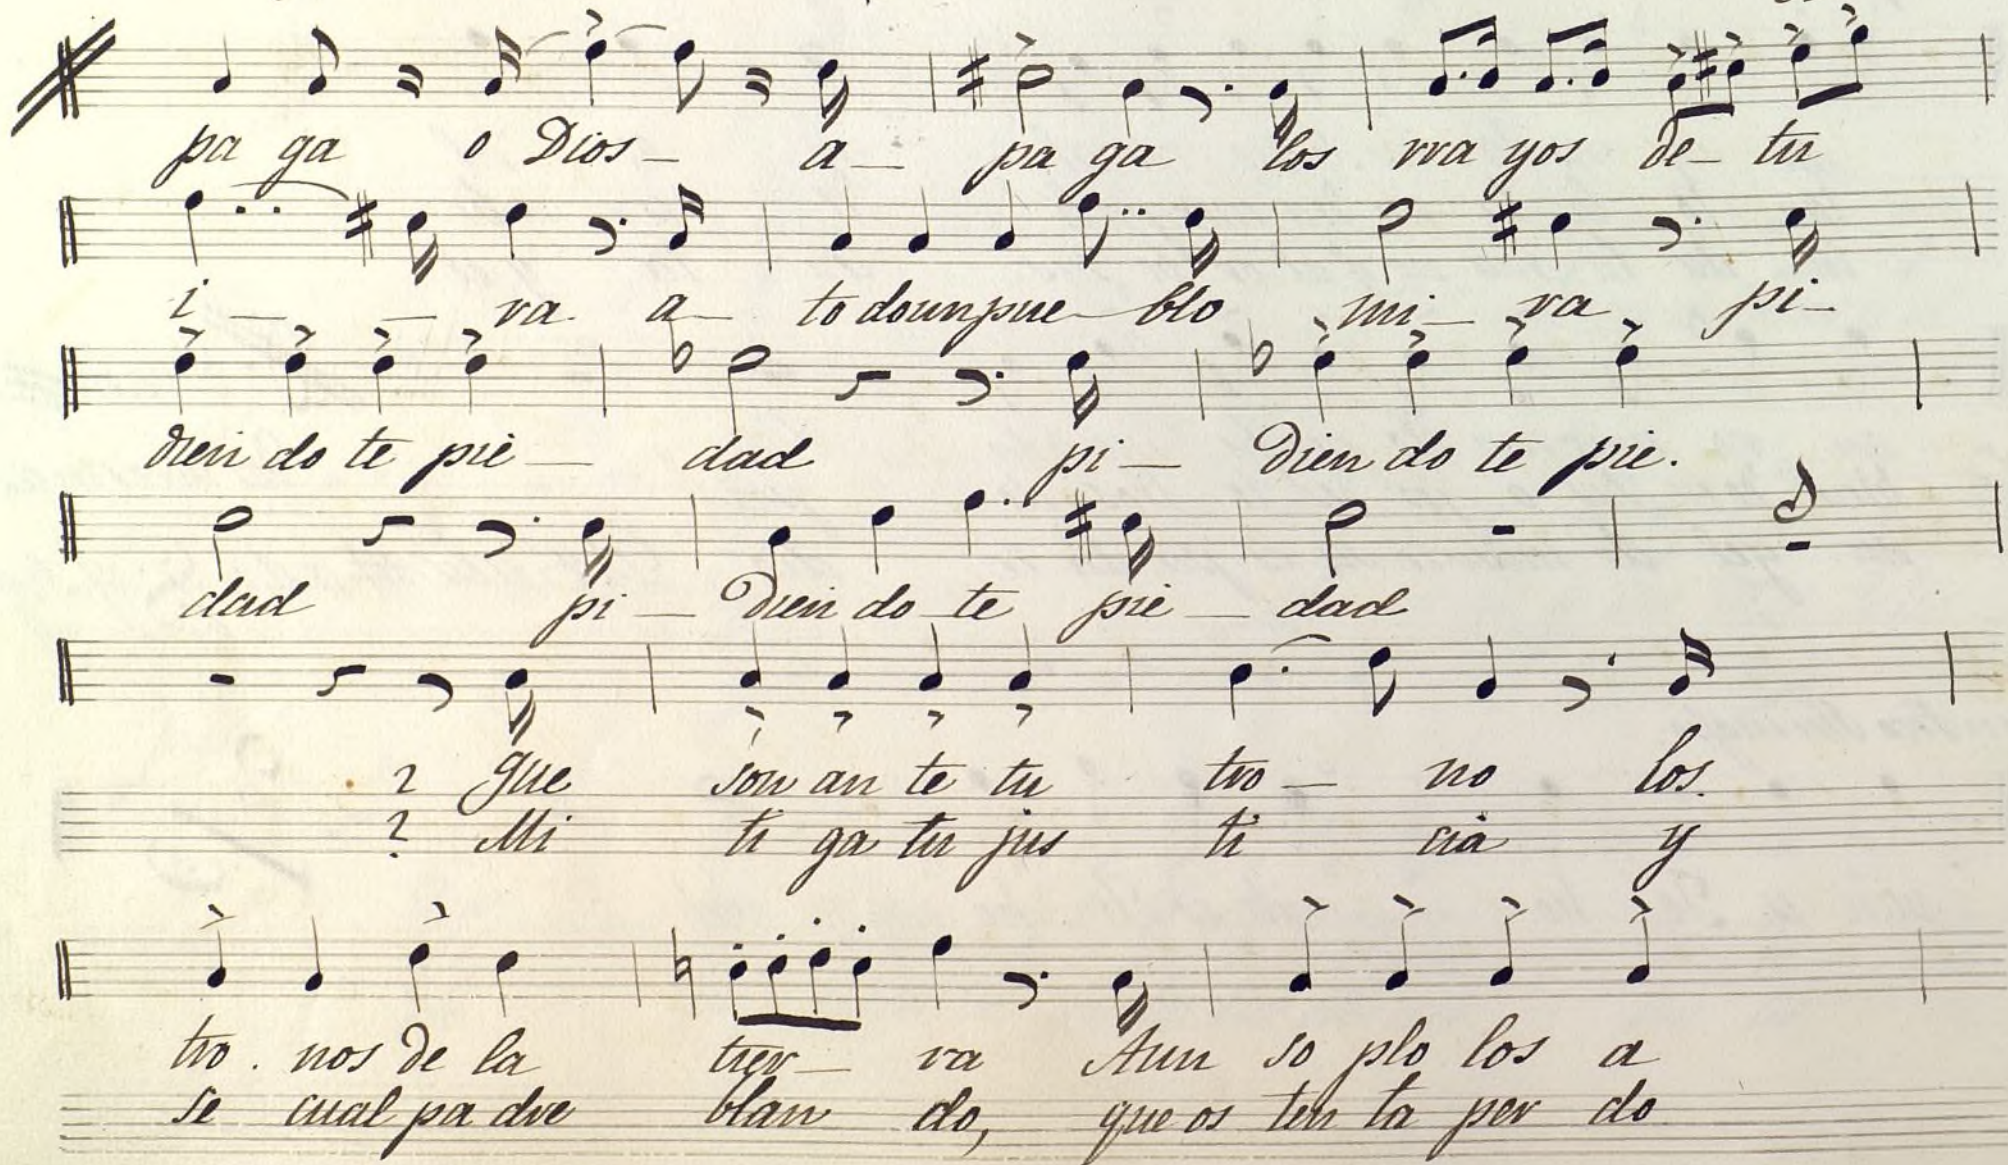 pa ga o Dios_ a_ pa ga los rra yos de_ tu
i_ _ ra a_ to doun pue_ blo mi_ ra pi_
dien do te pie_ dad pi_ dien do te pie.
dad pi_ dien do_te pie_ dad
2 que son an te tu tro_ no los.
2 Mi ti ga tu jus ti cia y
tro. nos de la tier_ ra Aun so plo los a
se cual pa dre blan do, que os ten ta per do